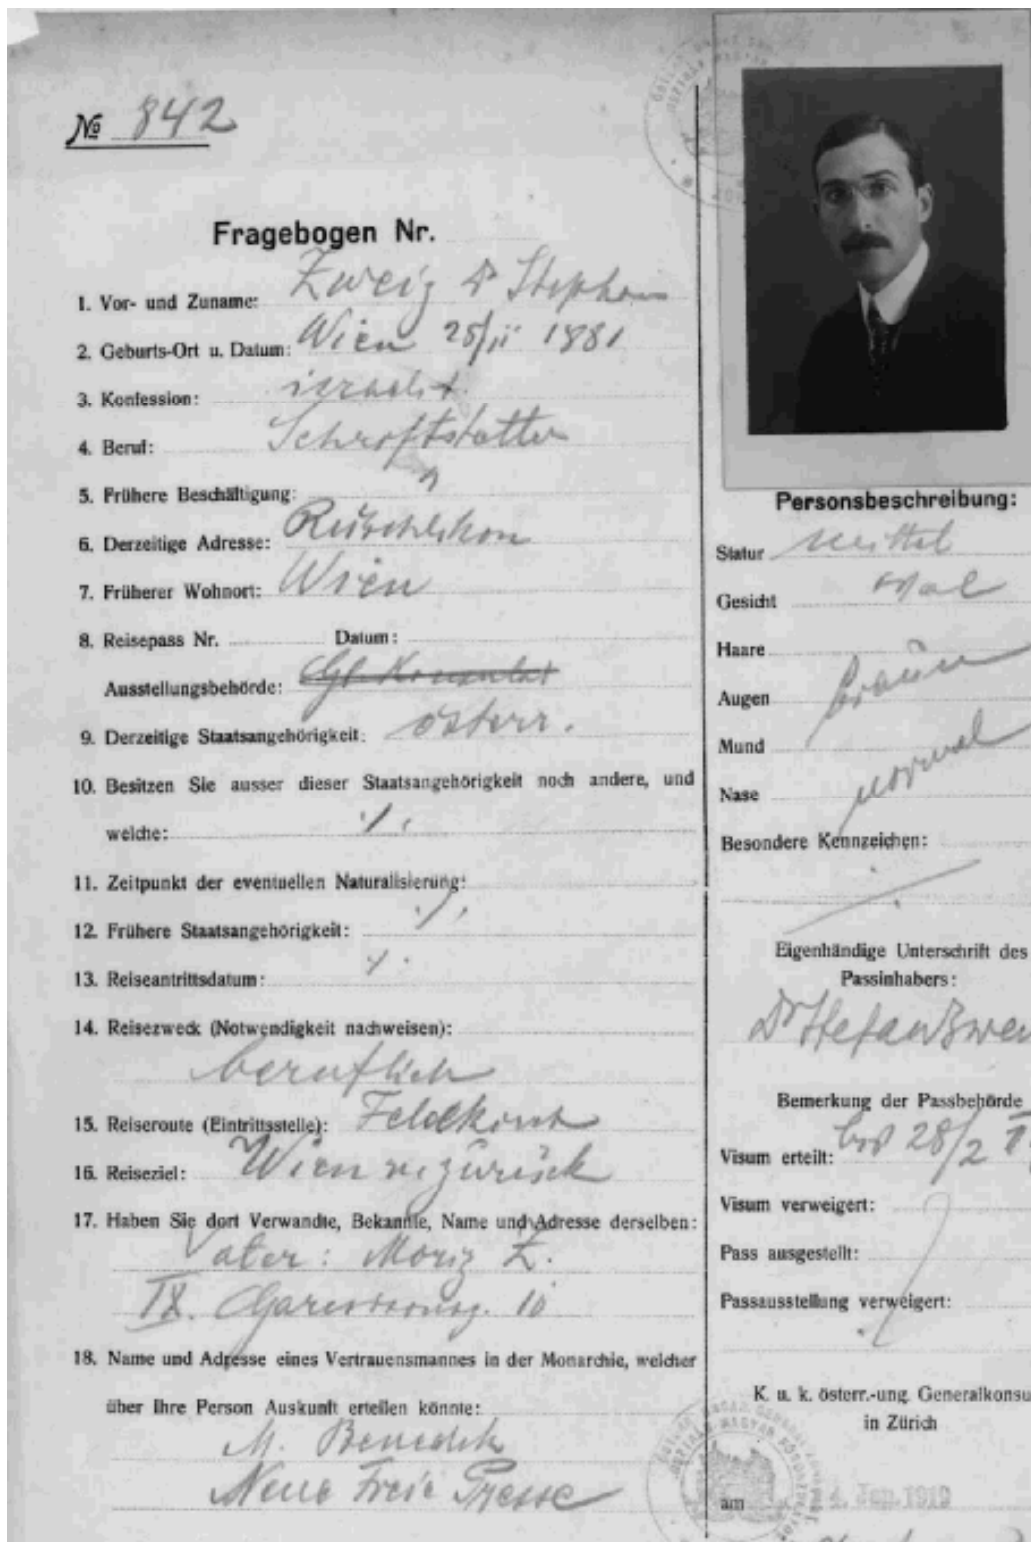 № 842
Fragebogen Nr.
1. Vor- und Zuname: Zweig Dr Stephan
2. Geburts-Ort u. Datum: Wien 28/11 1881
3. Konfession: israelit.
4. Beruf: Schriftsteller
5. Frühere Beschäftigung:
6. Derzeitige Adresse: Rüschlikon
7. Früherer Wohnort: Wien
8. Reisepass Nr. Datum:
Ausstellungsbehörde:
9. Derzeitige Staatsangehörigkeit: österr.
10. Besitzen Sie ausser dieser Staatsangehörigkeit noch andere, und
welche: ./.
11. Zeitpunkt der eventuellen Naturalisierung:
12. Frühere Staatsangehörigkeit: ./.
13. Reiseantrittsdatum: ./.
14. Reisezweck (Notwendigkeit nachweisen):
beruflich
15. Reiseroute (Eintrittsstelle): Feldkirch
16. Reiseziel: Wien u. zurück
17. Haben Sie dort Verwandte, Bekannte, Name und Adresse derselben:
Vater: Moriz Z.
IX. Garnisong. 10
18. Name und Adresse eines Vertrauensmannes in der Monarchie, welcher
über Ihre Person Auskunft erteilen könnte:
M. Benedikt
Neue Freie Presse
Personsbeschreibung:
Statur mittel
Gesicht oval
Haare
Augen braun
Mund
Nase normal
Besondere Kennzeichen:
./.
Eigenhändige Unterschrift des
Passinhabers:
Dr Stefan Zwei
Bemerkung der Passbehörde
Visum erteilt: bis 28/2
Visum verweigert:
Pass ausgestellt:
Passausstellung verweigert:
K. u. k. österr.-ung. Generalkonsu
in Zürich
am 4. Jan. 1919